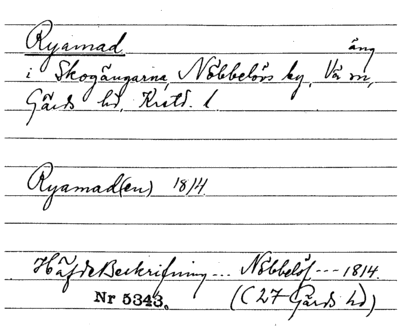 Ryamad äng
i Skogängarna, Nöbbelövs by, Vä sn,
Gärds hd, Krstd. l
Ryamad(en) 1814
Häfde Beskrifning... Nöbbelöf --- 1814.
Nr 5343. (C 27 Gärds hd)